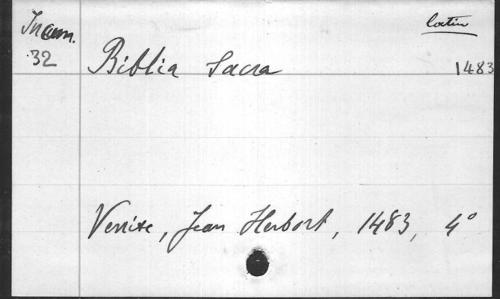 Incun. latin
32 Biblia Sacra 1483
Venise, Jean Herbort, 1483, 4°